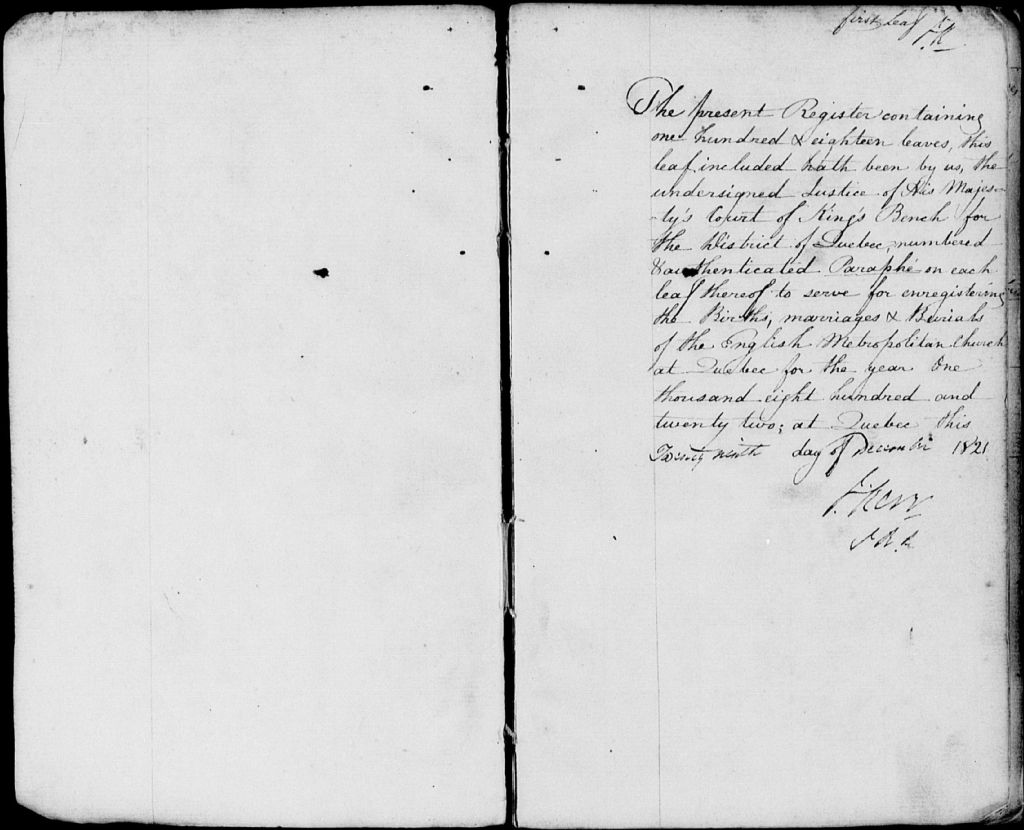 first Leaf J.K
The present Register containing
one hundred & eighteen leaves, this
leaf included hath been by us, the
undersigned Justice of His Majes-
-ty's Court of King's Bench for
the District of Quebec, numbered
& authenticated Paraphé on each
leaf thereof to serve for enregistering
the Births, marriages & Burials
of the English Metropolitan Church
at Quebec for the year One
thousand eight hundred and
twenty two; at Quebec this
Twenty ninth day of December 1821
J. Kerr